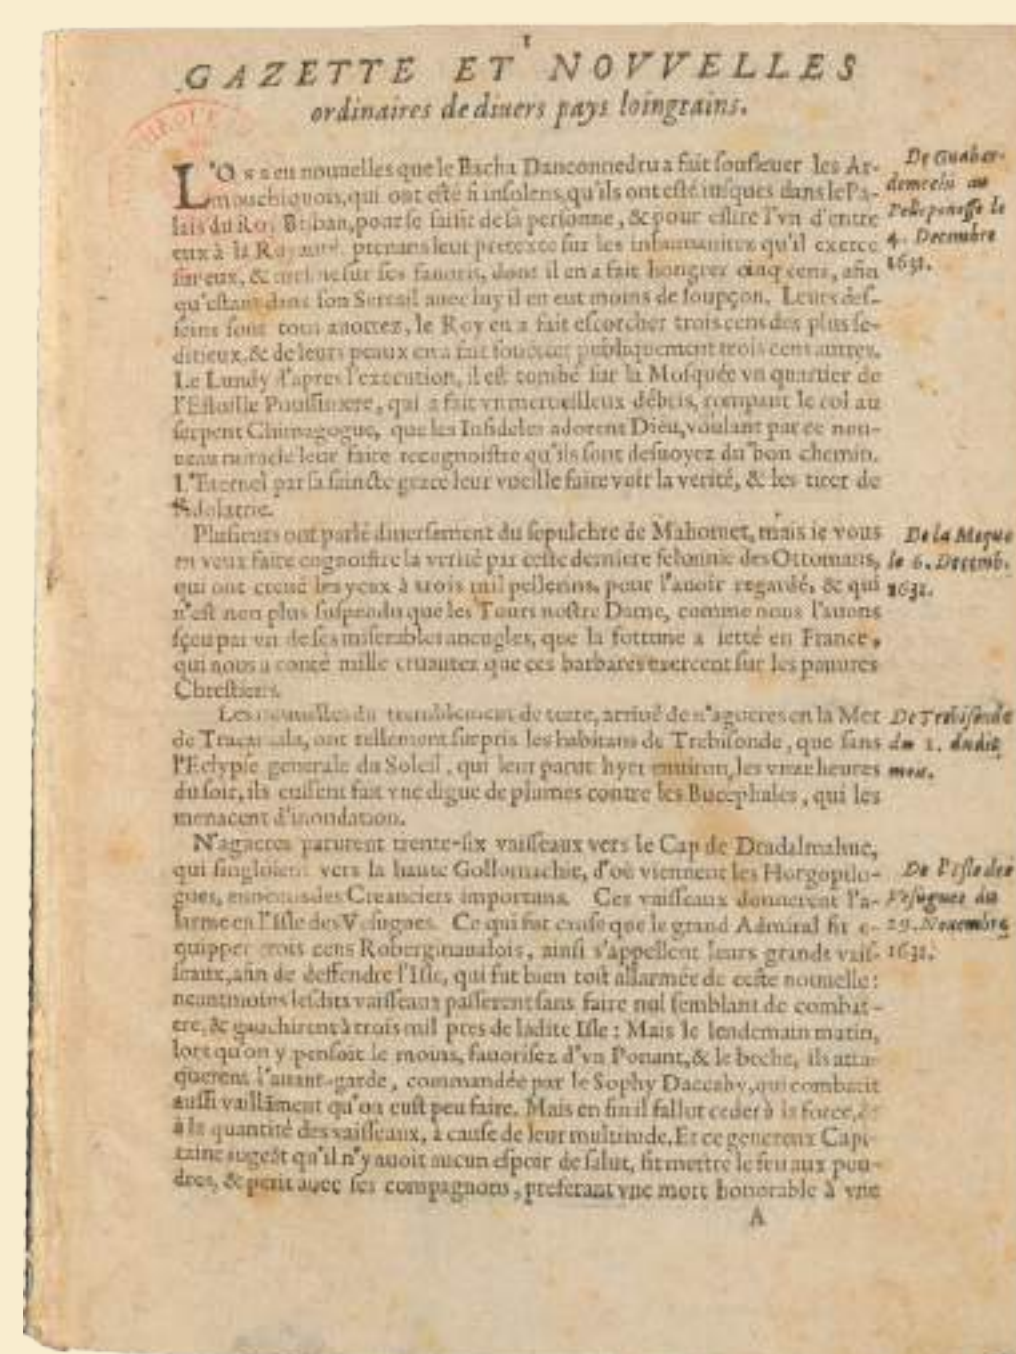 1
GAZETTE ET NOVVELLES
ordinaires de diuers pays loingtains.
L'On a eu nouuelles que le Bacha Danconnedrua fait sousleuer les Ar-
mouchiquois, qui ont esté si insolens, qu'ils ont esté iusques dans le Pa-
lais du Roy pour se saisir de sa personne, & pour eslire l'vn d'entre
eux à la prenans leur pretexte sur les inhumanitez qu'il exerce
sur eux, & mesme sur ses fauoris, dont il en a fait hongrer cinq cens, afin
qu'estant dans son Serrail auec luy il en eut moins de soupçon. Leurs des-
seins sont tous auortez, le Roy en a fait escorcher trois cens des plus se-
ditieux, & de leurs peaux en a fait fouetter publiquement trois cens autres.
Le Lundy d'apres l'execution, il est tombé sur la Mosquée vn quartier de
l'Estoille Poussiniere, qui a fait vn merueilleux débris, rompant le col au
serpent Chimagogue, que les Infideles adorent Dieu, voulant par ce nou-
ueau miracle leur faire recognoistre qu'ils sont desuoyez du bon chemin.
L'Eternel par sa saincte grace leur vueille faire voir la verité, & les tirer de
l'Idolatrie.
De Guaber-
demeeln au
Pelleponesse le
4. Decembre
1631.
Plusieurs ont parlé diuersement du sepulchre de Mahomet, mais ie vous
en veux faire cognoistre la verité par ceste derniere felonnie des Ottomans,
qui ont creué les yeux à trois mil pellerins, pour l'auoir regardé, & qui
n'est non plus suspendu que les Tours nostre Dame, comme nous l'auons
sçeu par vn de ses miserables aueugles, que la fortune a ietté en France,
qui nous a conté mille cruautez que ces barbares exercent sur les pauures
Chrestiens.
De la Meque
le 6. Decemb.
1631.
Les nouuelles du tremblement de terre, arriué de n'agueres en la Mer
de ont tellement surpris les habitans de Trebisonde, que sans
l'Eclypse generale du Soleil, qui leur parut hyer enuiron les vnze heures
du soir, ils eussent fait vne digue de plumes contre les Bucephales, qui les
menacent d'inondation.
De Trebisonde
du 2. dudit
mois.
N'agueres parurent trente-six vaisseaux vers le Cap de Dradalmahue,
qui singloient vers la haute Gollomachie, d'où viennent les Horgopilo-
gues, ennemis des Creanciers importuns. Ces vaisseaux donnerent l'a-
larme en l'Isle des Vesugues. Ce qui fut cause que le grand Admiral fit e-
quipper trois cens Roberginaualois, ainsi s'appellent leurs grands vais-
seaux, afin de deffendre l'Isle, qui fut bien tost allarmée de ceste nouuelle:
neantmoins lesdits vaisseaux passerent sans faire nul semblant de combat-
tre, & gauchirent à trois mil pres de ladite Isle: Mais le lendemain matin,
lors qu'on y pensoit le moins, fauorisez d'vn Ponant, & le beche, ils atta-
querent l'auant-garde, commandée par le Sophy Daccaby, qui combatit
aussi vaillāment qu'on eust peu faire. Mais en fin il fallut ceder à la force, &
à la quantité des vaisseaux, à cause de leur multitude. Et ce genereux Capi-
taine iugeāt qu'il n'y auoit aucun espoir de salut, fit mettre le feu aux pou-
dres, & perit auec ses compagnons, preferant vne mort honorable à vne
De l'Isle des
Vesugues du
29. Nouembre
1631.
A